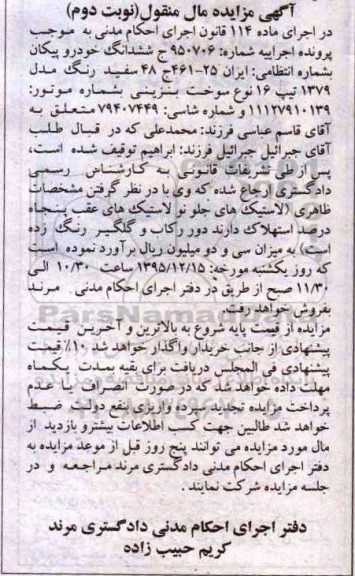 آگهی مزایده مال منقول(نوبت دوم)
در اجرای ماده ۱۱۴ قانون اجرای احکام مدنی به موجب
پرونده اجراییه شماره: ۹۵۰۷۰۶ ج ششدانگ خودرو پیکان
بشماره انتظامی: ایران ۲۵-۴۶۱ج ۴۸ سفید رنگ مدل
۱۳۷۹ تیپ ۱۶ نوع سوخت بنزینی بشماره موتور:
۱۱۱۲۷۹۱۰۱۳۹ و شماره شاسی: ۷۹۴۰۷۴۴۹ متعلق به
آقای قاسم عباسی فرزند: محمدعلی که در قبال طلب
آقای جبرائیل جبرائیل فرزند: ابراهیم توقیف شده است،
پس از طی تشریفات قانونی به کارشناس رسمی
دادگستری ارجاع شده که وی با در نظر گرفتن مشخصات
ظاهری (لاستیک های جلو نو لاستیک های عقب پنجاه
درصد استهلاک دارند دور رکاب و گلگیر رنگ زده
است) به میزان سی و دو میلیون ریال برآورد نموده است
که روز یکشنبه مورخه: ۱۳۹۵/۱۲/۱۵ ساعت ۱۰/۳۰ الی
۱۱/۳۰ صبح از طریق در دفتر اجرای احکام مدنی مرند
بفروش خواهد رفت.
مزایده از قیمت پایه شروع به بالاترین و آخرین قیمت
پیشنهادی از جانب خریدار واگذار خواهد شد ۱۰٪ قیمت
پیشنهادی فی المجلس دریافت برای بقیه بمدت یکماه
مهلت داده خواهد شد که در صورت انصراف یا عدم
پرداخت مزایده تجدید سپرده واریزی بنفع دولت ضبط
خواهد شد طالبین جهت کسب اطلاعات بیشترو بازدید از
مال مورد مزایده می توانند پنج روز قبل از موعد مزایده به
دفتر اجرای احکام مدنی دادگستری مرند مراجعه و در
جلسه مزایده شرکت نمایند .
دفتر اجرای احکام مدنی دادگستری مرند
کریم حبیب زاده